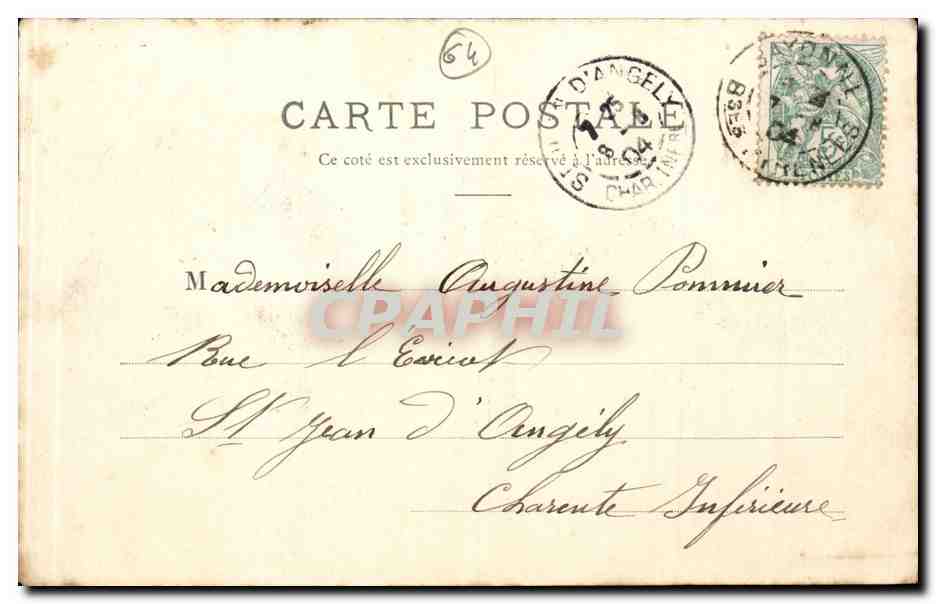 64
CARTE POSTALE
Ce coté est exclusivement réservé à l'adresse
ST JEAN D'ANGELY
8
04
CHAR. INFRE
BAYONNE
04
BSES PYRENEES
Mademoiselle Augustine Pommier
CPAPHIL
Rue l'
St Jean d'Angély
Charente Inférieure